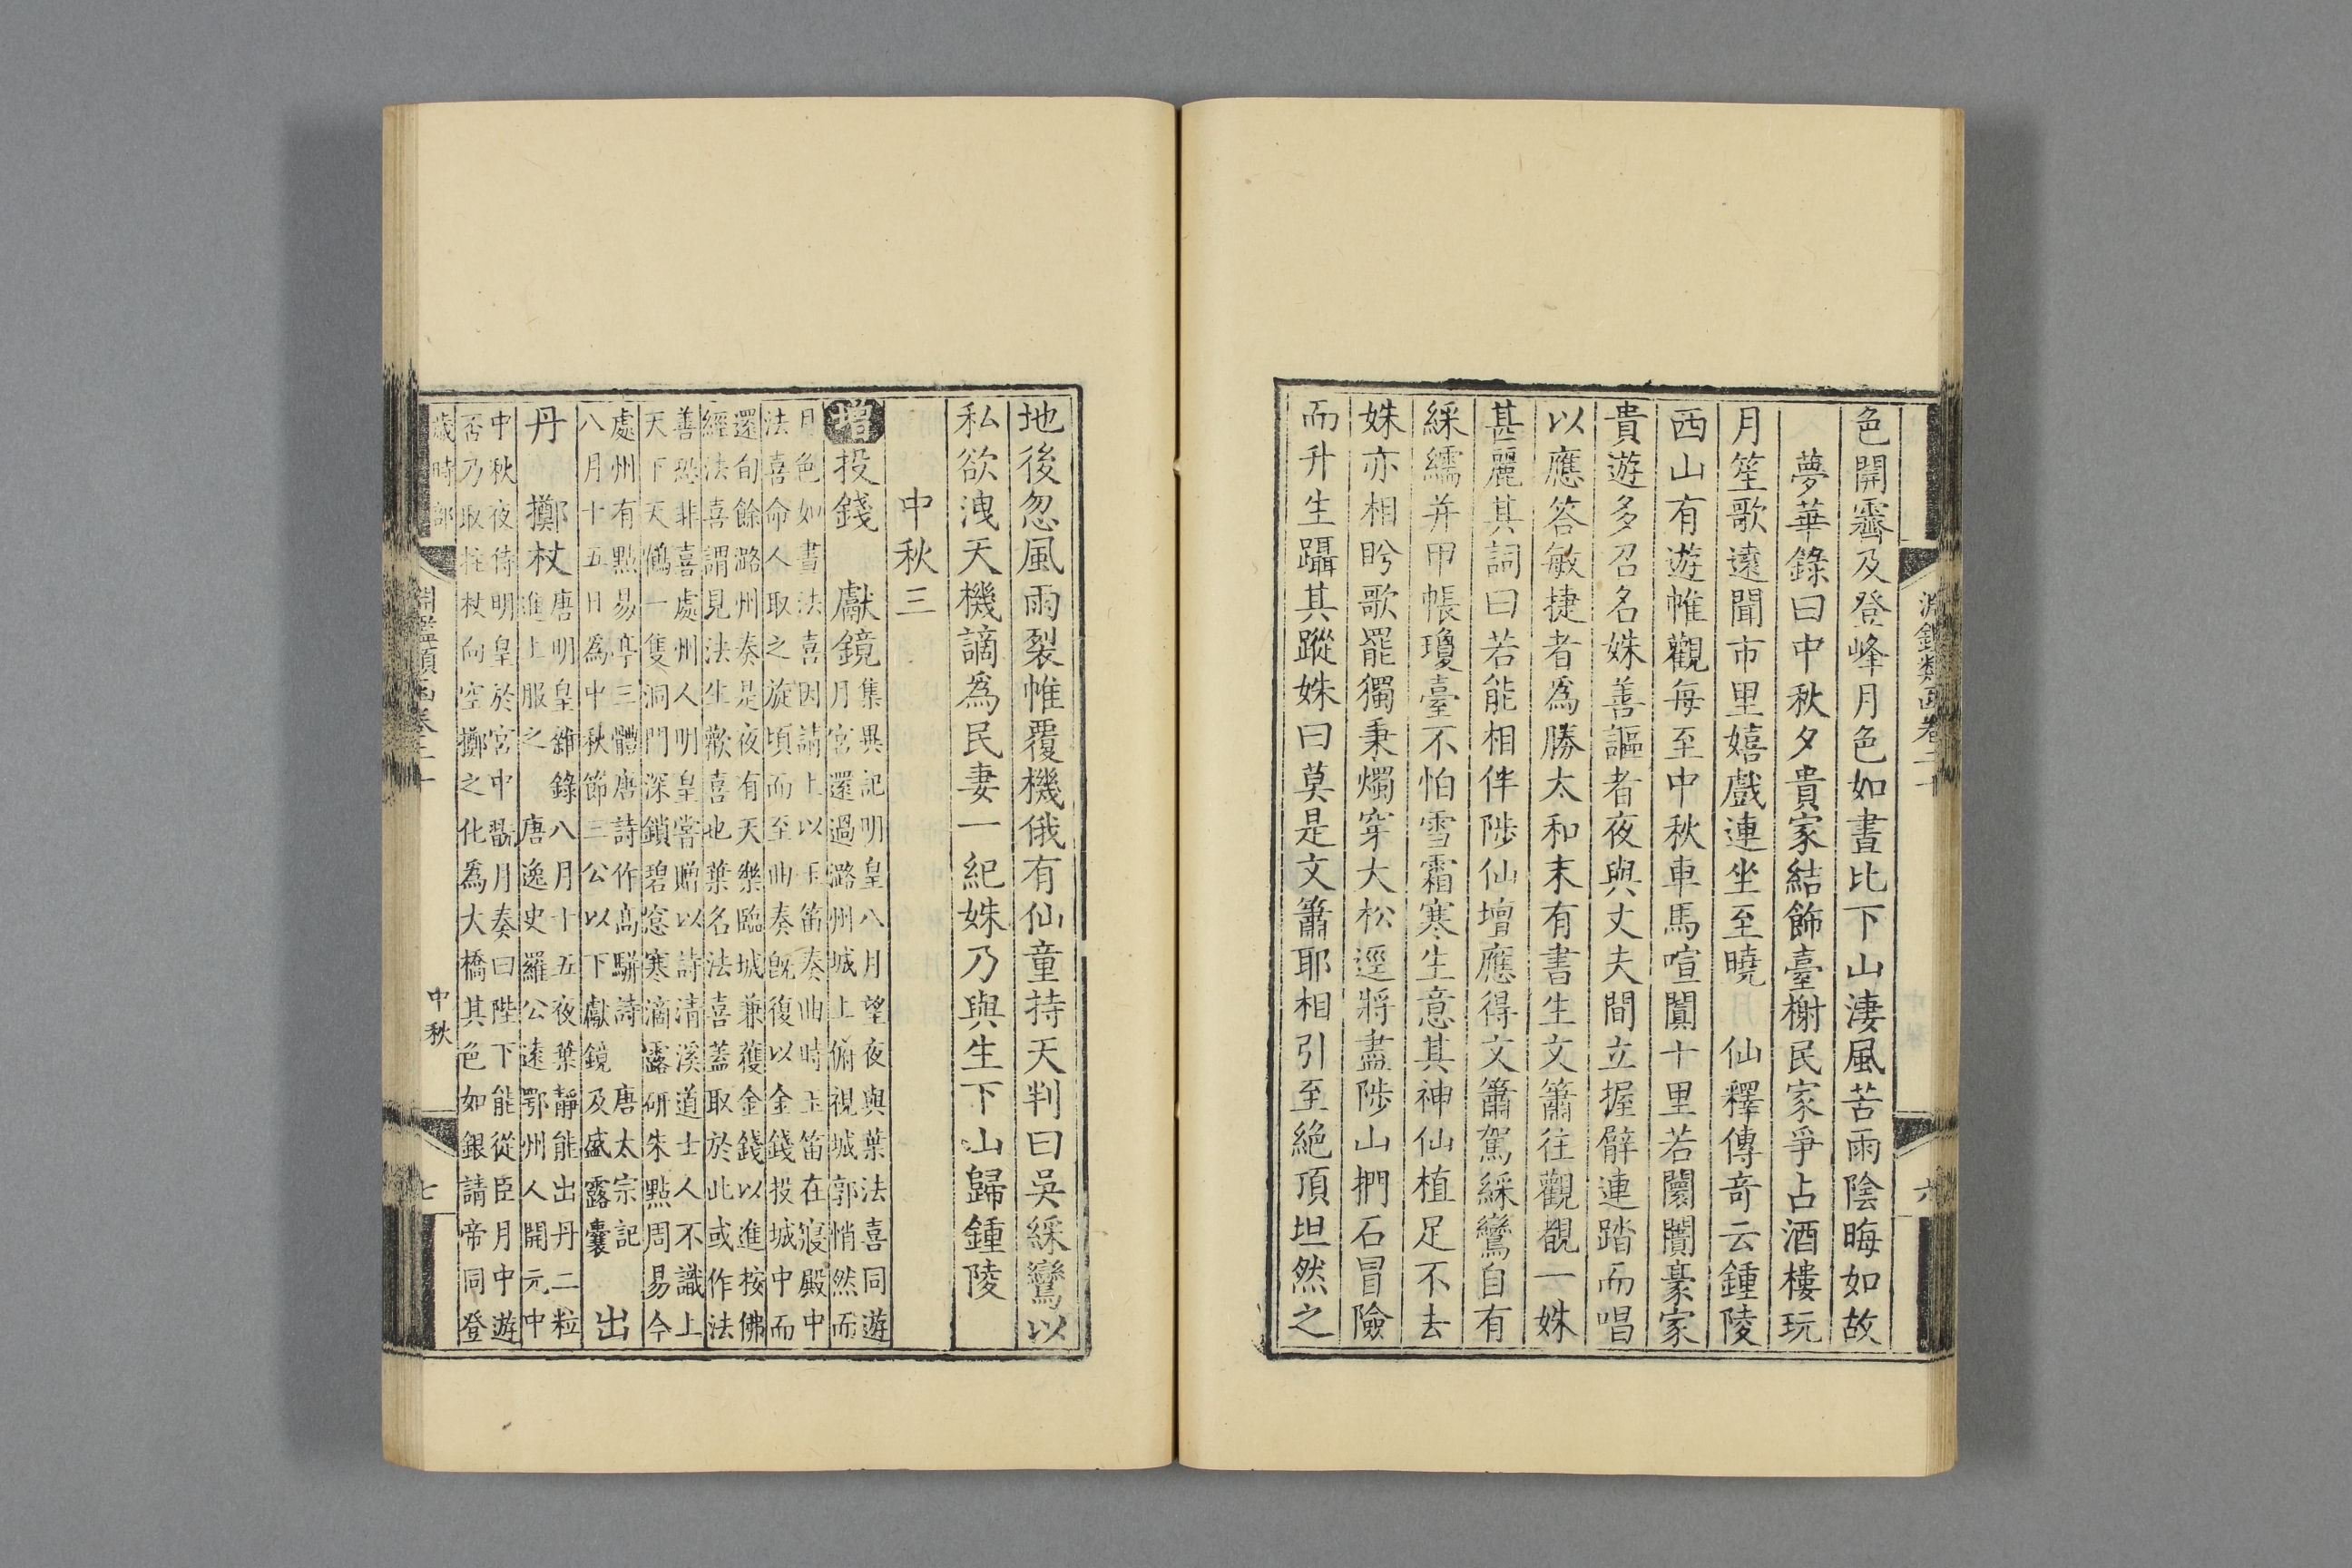 淵鑑類函卷二十
六
色開霽及登峰月色如晝比下山淒風苦雨陰晦如故
夢華錄曰中秋夕貴家結飾臺榭民家爭占酒樓玩
月笙歌遠聞市里嬉戲連坐至曉　仙釋傳竒云鍾陵
西山有遊帷觀每至中秋車馬喧闐十里若闤闠豪家
貴遊多召名姝善謳者夜與丈夫間立握臂連踏而唱
以應答敏捷者爲勝太和末有書生文簫往觀覩一姝
甚麗其詞曰若能相伴陟仙壇應得文簫駕綵鸞自有
綵繻并甲帳瓊臺不怕雪霜寒生意其神仙植足不去
姝亦相盻歌罷獨秉燭穿大松逕將盡陟山捫石冒險
而升生躡其蹤姝曰莫是文簫耶相引至絶頂坦然之
地後忽風雨裂帷覆機俄有仙童持天判曰吳綵鸞以
私欲洩天機謫爲民妻一紀姝乃與生下山歸鍾陵
中秋三
增投錢　獻鏡集異記明皇八月望夜與葉法喜同遊
月宮還過潞州城上俯視城郭悄然而
月色如晝法喜因請上以玉笛奏曲時玉笛在寢殿中
法喜命人取之旋頃而至曲奏旣復以金錢投城中而
還旬餘潞州奏是夜有天樂臨城兼獲金錢以進按佛
經法喜謂見法生歡喜也葉名法喜蓋取於此或作法
善恐非喜處州人明皇嘗贈以詩清溪道士人不識上
天下天鶴一隻洞門深鎖碧窻寒滴露研朱點周易今
處州有點易亭三體唐詩作高騈詩　唐太宗記
八月十五日爲中秋節三公以下獻鏡及盛露囊　出
丹　擲杖唐明皇雜錄八月十五夜葉靜能出丹二粒
進上服之　唐逸史羅公遠鄂州人開元中
中秋夜侍明皇於宮中翫月奏曰陛下能從臣月中遊
否乃取拄杖向空擲之化爲大橋其色如銀請帝同登
歲時部
淵鑑類函卷二十
中秋
七